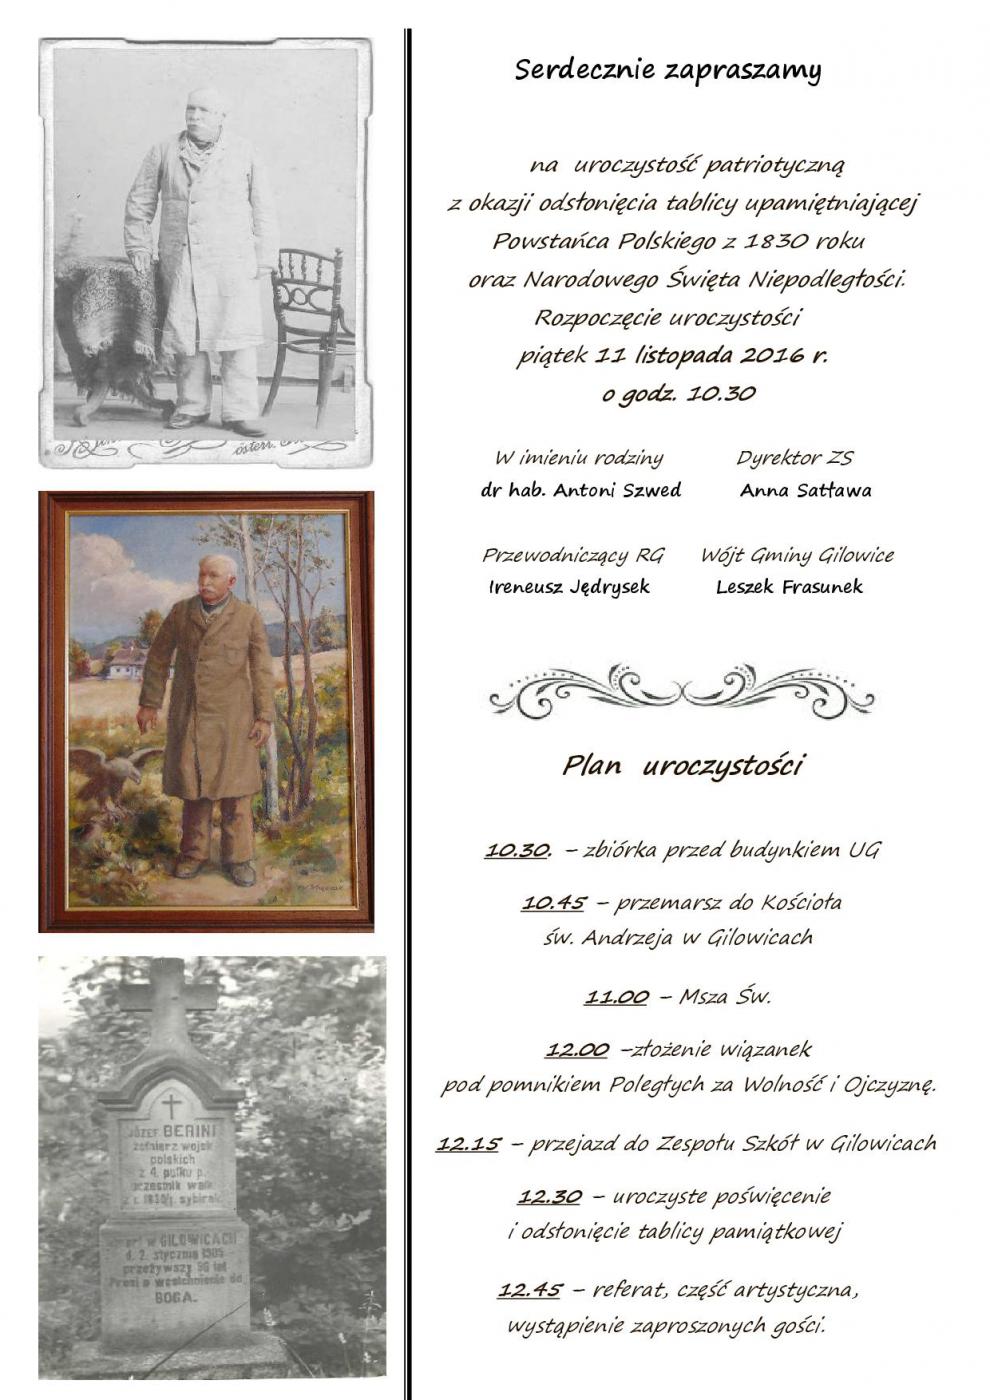 Serdecznie zapraszamy
na uroczystość patriotyczną
z okazji odsłonięcia tablicy upamiętniającej
Powstańca Polskiego z 1830 roku
oraz Narodowego Święta Niepodległości.
Rozpoczęcie uroczystości
piątek 11 listopada 2016 r.
o godz. 10.30
W imieniu rodziny
dr hab. Antoni Szwed
Dyrektor ZS
Anna Satława
Przewodniczący RG
Ireneusz Jędrysek
Wójt Gminy Gilowice
Leszek Frasunek
Plan uroczystości
10.30. – zbiórka przed budynkiem UG
10.45 – przemarsz do Kościoła
św. Andrzeja w Gilowicach
11.00 – Msza Św.
12.00 –złożenie wiązanek
pod pomnikiem Poległych za Wolność i Ojczyznę.
12.15 – przejazd do Zespołu Szkół w Gilowicach
12.30 – uroczyste poświęcenie
i odsłonięcie tablicy pamiątkowej
12.45 – referat, część artystyczna,
wystąpienie zaproszonych gości.
österr.
JÓZEF BERINI
żołnierz wojsk
polskich
z 4. pułku p.
uczestnik walk
z r. 1830/1. sybirak
w GILOWICACH
d. 2. stycznia 1905
przeżywszy 96 lat
Prosi o westchnienie do
BOGA.